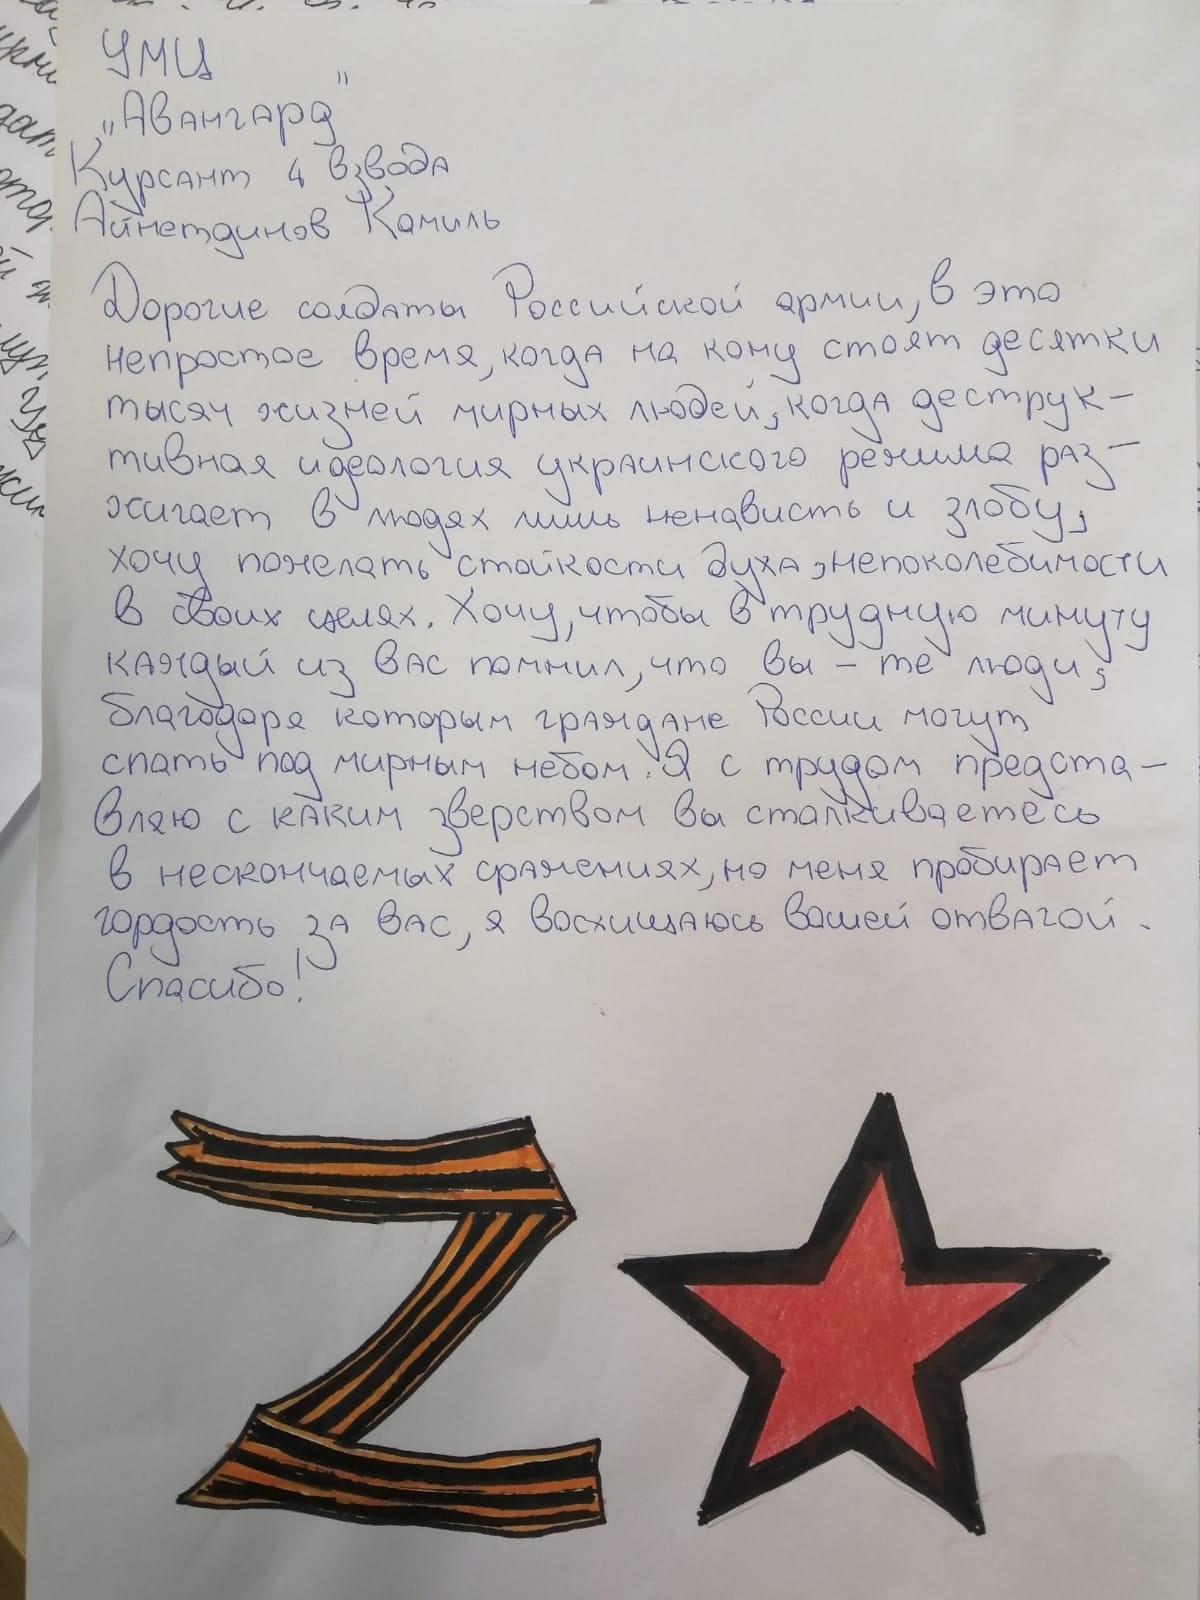 УМЦ
"Авангард"
Курсант 4 взвода
Айнетдинов Камиль
Дорогие солдаты Российской армии, в это
непростое время, когда на кону стоят десятки
тысяч жизней мирных людей, когда деструк-
тивная идеология украинского режима раз-
жигает в людях лишь ненависть и злобу,
хочу пожелать стойкости духа, непоколебимости
в своих целях. Хочу, чтобы в трудную минуту
каждый из вас помнил, что вы - те люди,
благодаря которым граждане России могут
спать под мирным небом. Я с трудом предста-
вляю с каким зверством вы сталкиваетесь
в нескончаемых сражениях, но меня пробирает
гордость за вас, я восхищаюсь вашей отвагой.
Спасибо!
Z